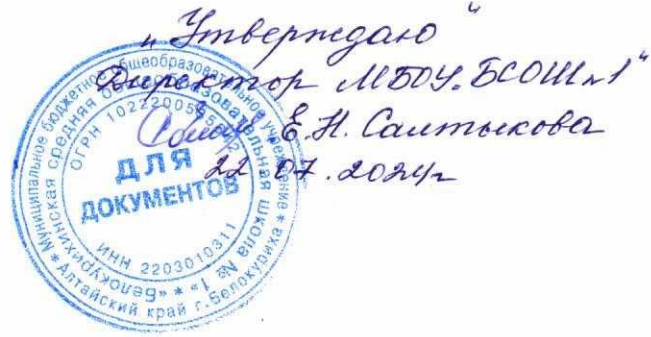 "Утверждаю"
Директор МБОУ "БСОШ №1"
Е.Н. Салтыкова
22.07.2024г
Муниципальное бюджетное общеобразовательное учреждение *
«Белокурихинская средняя общеобразовательная школа № 1» *
* Алтайский край г.Белокуриха *
ОГРН
ИНН 2203010311
ДЛЯ
ДОКУМЕНТОВ